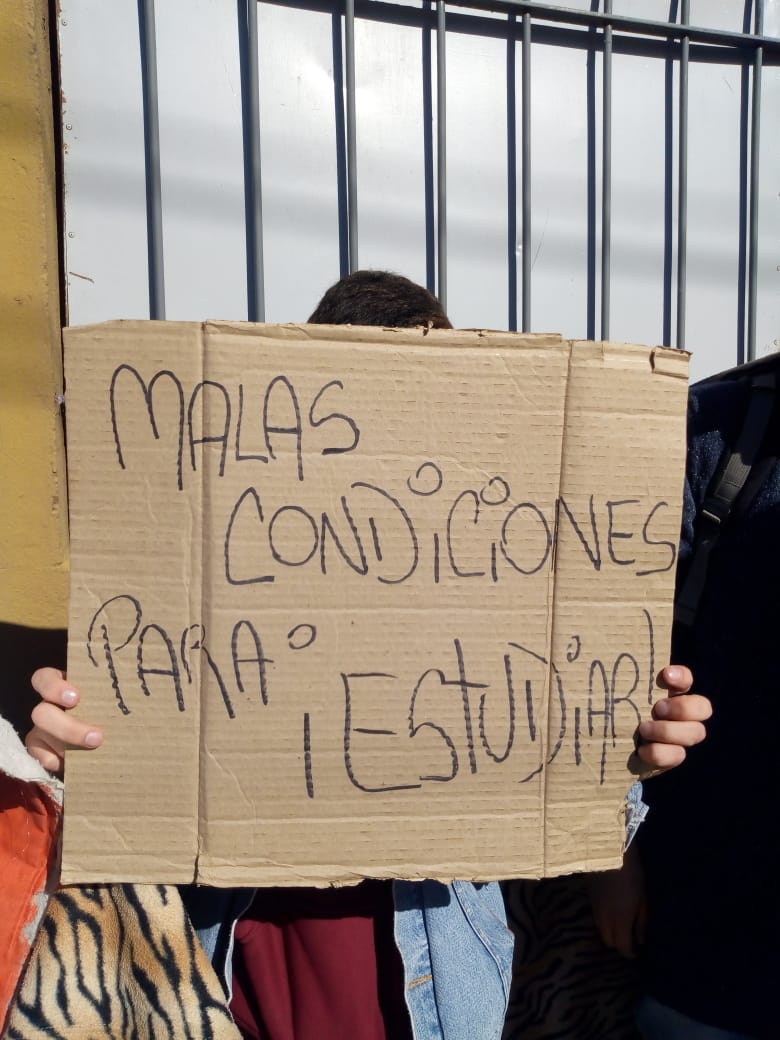 MALAS
CONDICIONES
PARA
¡ESTUDIAR!